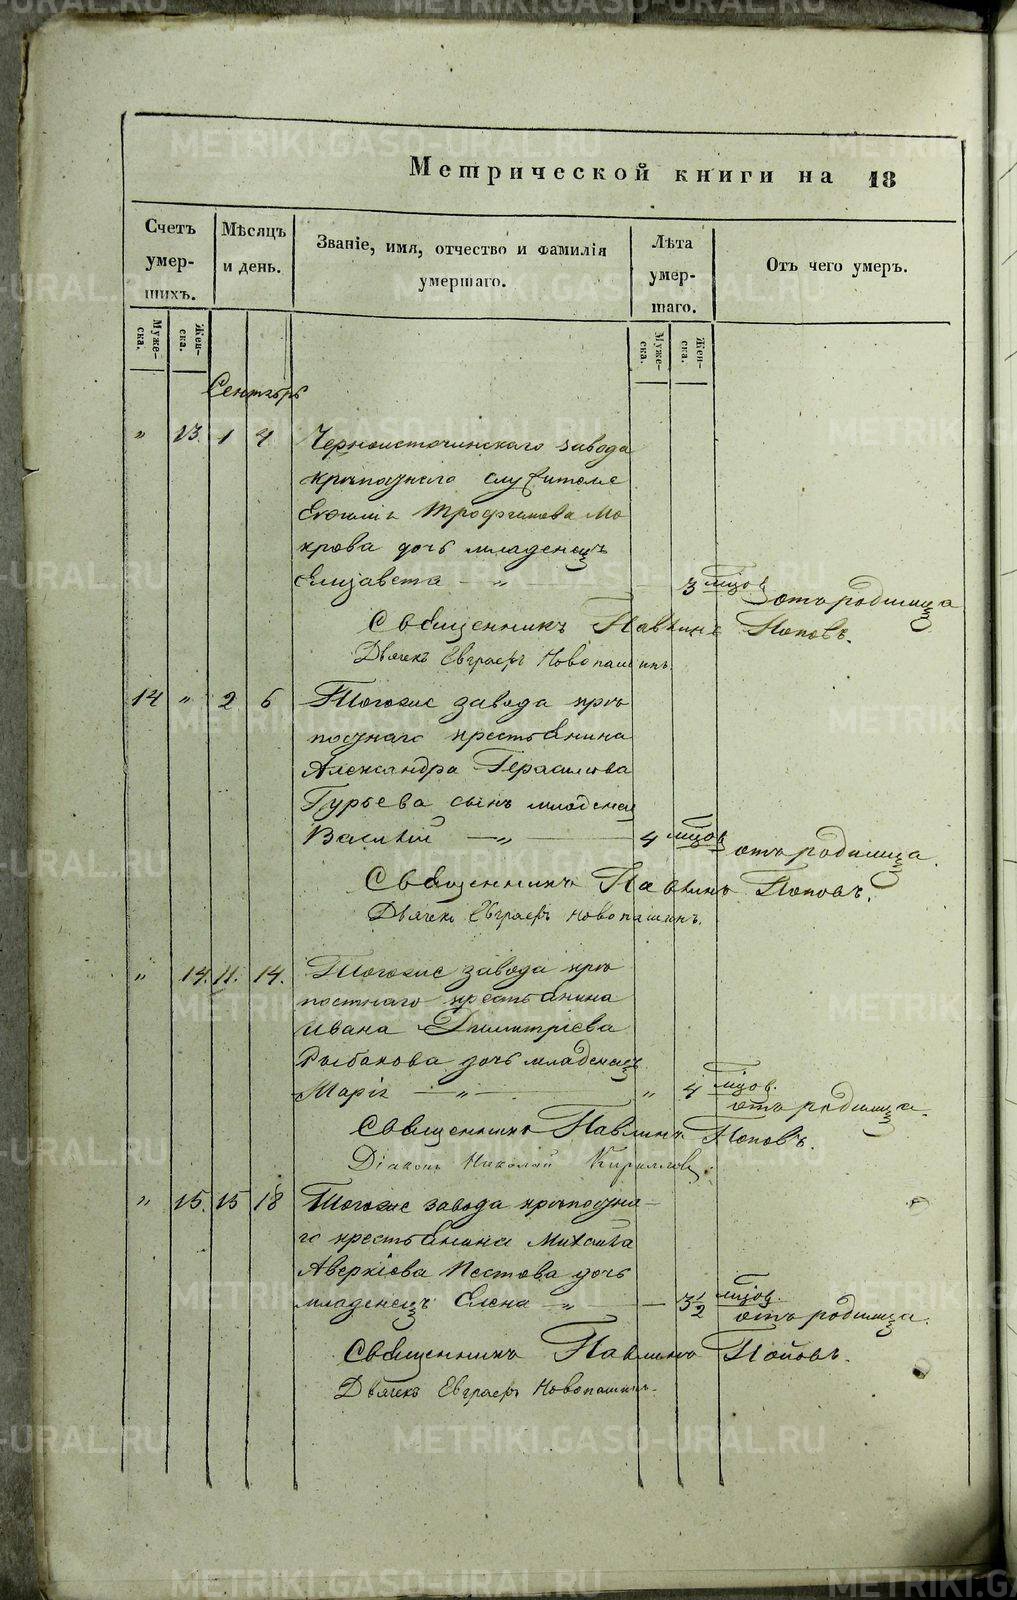 METRIKI.GASO-URAL.RU
Метрической книги на 18
Счетъ умер-шихъ.
Мѣсяцъ и день.
Званіе, имя, отчество и фамилія умершаго.
Лѣта умер-шаго.
Отъ чего умеръ.
Муже-ска.
Жен-ска.
Муже-ска.
Жен-ска.
Сентябрь
" 13. 1 4 Черноисточинскаго завода
крѣпостнаго служителя
Трофимова Мо
крова дочь младенецъ
Елизавета — " — 3 мцов отъ родимца
Священникъ Павлинъ Поповъ.
Дьячекъ Евграфъ Новопашинъ
14 " 2 6 Тогоже завода крѣ
постнаго крестьянина
Александра Герасимова
Гурьева сынъ младенец
Василий — " — 4 мцов отъ родимца.
Священникъ Павлинъ Поповъ.
Дьячекъ Евграфъ Новопашинъ.
" 14. 11. 14. Тогоже завода крѣ
постнаго крестьянина
Ивана Димитріева
Рыбакова дочь младенецъ
Марія — " — " 4 мцов. отъ родимца.
Священникъ Павлинъ Поповъ.
Діаконъ Николай Кириллов.
" 15. 15 18 Тогоже завода крѣпостна-
го крестьянина Михаила
Аверкіева Пестова дочь
младенецъ Елена — " — 3 1/2 мцов. отъ родимца.
Священникъ Павлинъ Поповъ.
Дьячекъ Евграфъ Новопашинъ.